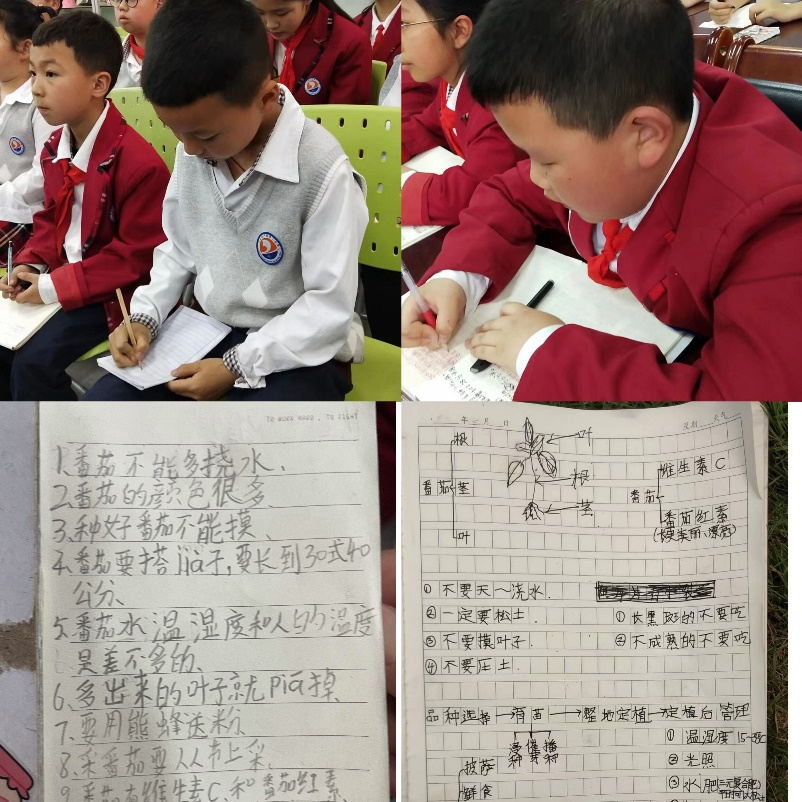 1、番茄不能多挠水、
2、番茄的颜色很多、
3、种好番茄不能摸、
4、番茄要搭jià子,要长到30式40
公分、
5、番茄水温湿度和人的温度
是差不多的、
6、多出来的叶子就pia掉、
7、要用熊蜂送粉、
8、采番茄要从下上采、
9、番茄有维生素C、和番茄红素、
年 月 日 星期 天气
根
叶
番茄
茎
根
茎
叶
维生素C
番茄
番茄红素
(使美丽、漂亮)
① 不要天~浇水.
② 一定要松土.
③ 不要摸叶子.
④ 不要压土.
① 长黑斑的不要吃
② 不成熟的不要吃
品种选择→育苗→整地定植→定植后管理
浸种 催芽 播种
① 温湿度
② 光照
③ 水肥
披萨
鲜食